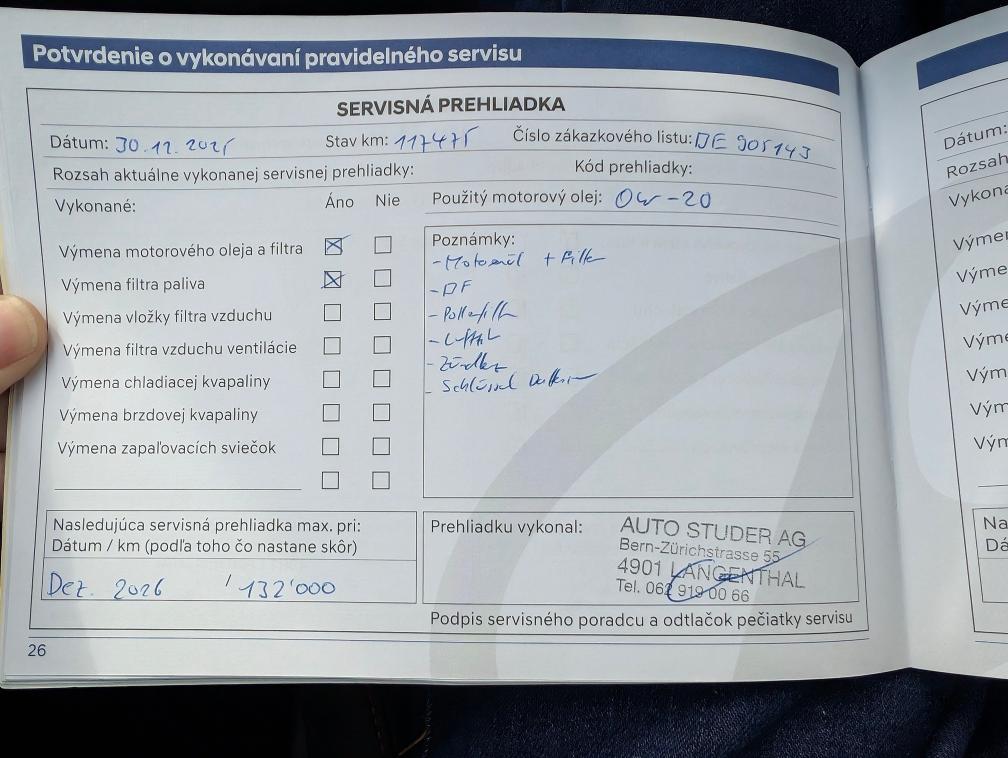 Potvrdenie o vykonávaní pravidelného servisu
SERVISNÁ PREHLIADKA
Dátum: 30.12.2025 Stav km: 117475 Číslo zákazkového listu: DE 905143
Rozsah aktuálne vykonanej servisnej prehliadky: Kód prehliadky:
Vykonané: Áno Nie Použitý motorový olej: 0W-20
Výmena motorového oleja a filtra
Výmena filtra paliva
Výmena vložky filtra vzduchu
Výmena filtra vzduchu ventilácie
Výmena chladiacej kvapaliny
Výmena brzdovej kvapaliny
Výmena zapaľovacích sviečok
Poznámky:
- Motorenöl + Filter
- Pollenfilter
- Schlüssel
Nasledujúca servisná prehliadka max. pri:
Dátum / km (podľa toho čo nastane skôr)
Dez. 2026 / 132'000
Prehliadku vykonal:
AUTO STUDER AG
Bern-Zürichstrasse 55
4901 LANGENTHAL
Tel. 062 919 00 66
Podpis servisného poradcu a odtlačok pečiatky servisu
26
Dátum:
Rozsah